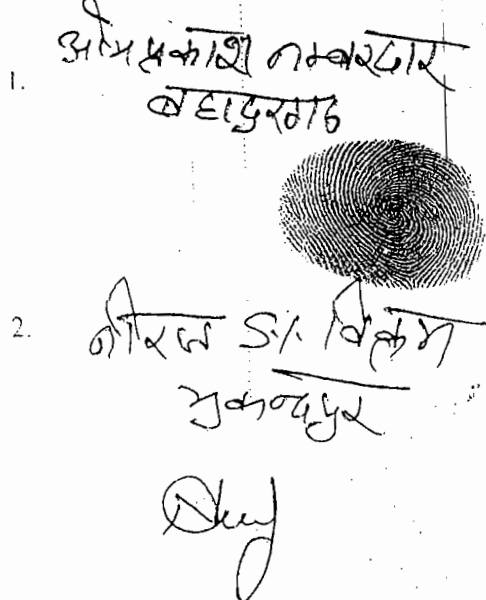 1. ओमप्रकाश नम्बरदार
बहादुरगढ
2. नीरज S/. विक्रम
मुकन्दपुर